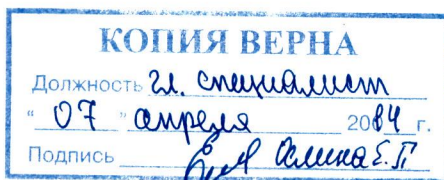 КОПИЯ ВЕРНА
Должность гл. специалист
“ 07 ” апреля 2084 г.
Подпись Осипова Е.П